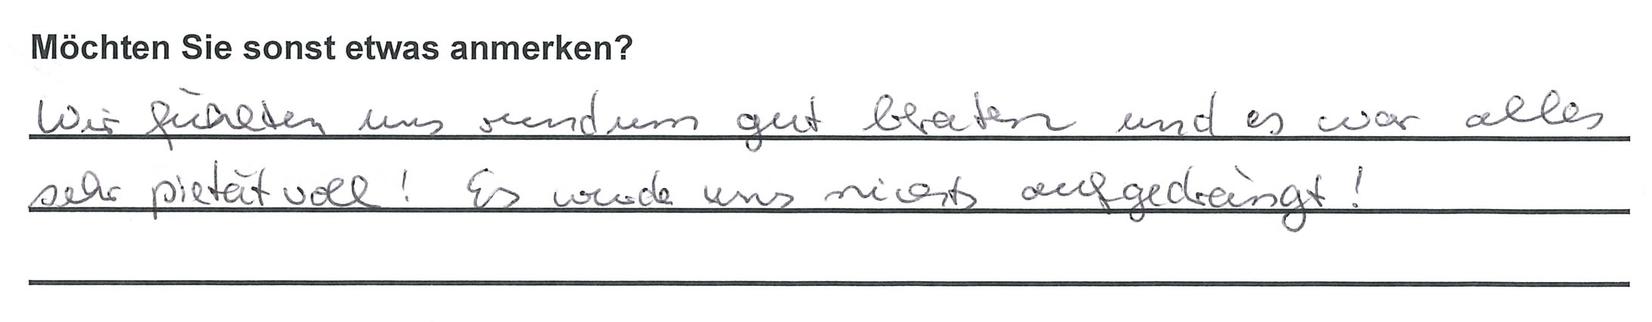 Möchten Sie sonst etwas anmerken?
Wir fühlten uns rundum gut beraten und es war alles
sehr pietätvoll! Es wurde uns nichts aufgedrängt!